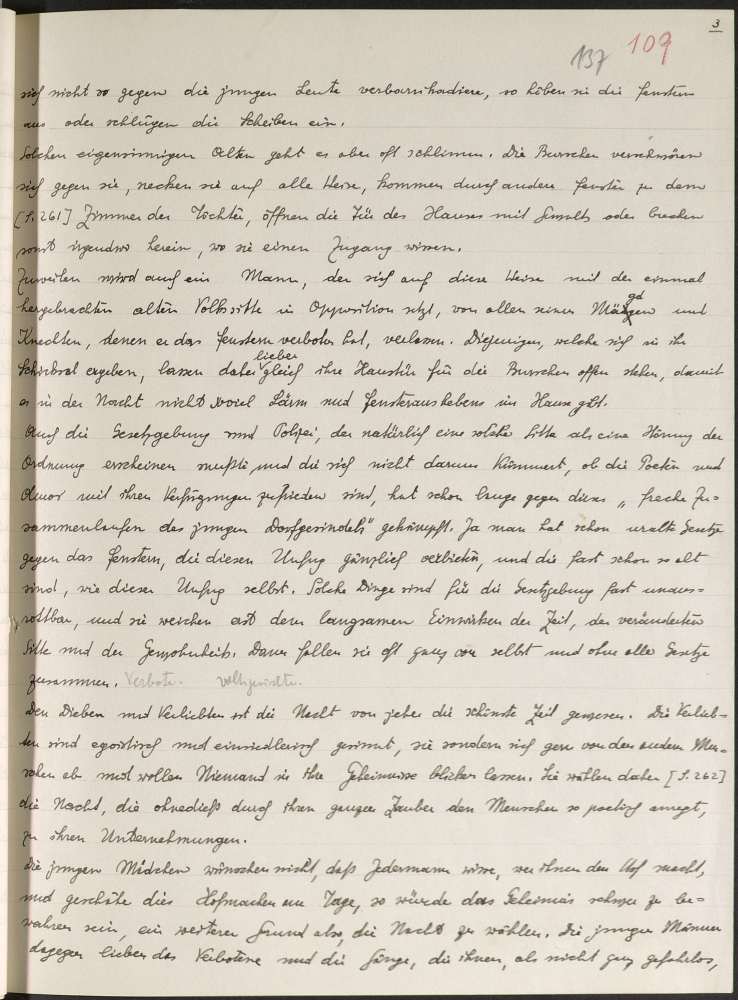 3
137 109
sich nicht so gegen die jungen Leute verbarrikadiere, so höben sie die Fenstern
aus oder schlügen die Scheiben ein.
Solchen eigensinnigen Alten geht es aber oft schlimm. Die Burschen verschwören
sich gegen sie, necken sie auf alle Weise, kommen durch andere Fenster zu dem
[S. 261] Zimmer der Töchter, öffnen die Tür des Hauses mit Gewalt oder brechen
sonst irgendwo herein, wo sie einen Zugang wissen.
Zuweilen wird auch ein Mann, der sich auf diese Weise mit der einmal
hergebrachten alten Volkssitte in Opposition setzt, von allen seinen Mägden und
Knechten, denen er das Fenstern verboten hat, verlassen. Diejenigen, welche sich in ihr
Schicksal ergeben, lassen daher lieber gleich ihre Haustür für die Burschen offen stehen, damit
es in der Nacht nicht soviel Lärm und Fensteraushebens im Hause gibt.
Auch die Gesetzgebung und Polizei, der natürlich eine solche Sitte als eine Störung der
Ordnung erscheinen mußte, und die sich nicht darum kümmert, ob die Poeten und
Amor mit ihren Verfügungen zufrieden sind, hat schon lange gegen dieses „freche Zu=
sammenlaufen des jungen Dorfgesindels" gekämpft. Ja man hat schon uralte Gesetze
gegen das Fenstern, die diesen Unfug gänzlich verbieten, und die fast schon so alt
sind, wie dieser Unfug selbst. Solche Dinge sind für die Gesetzgebung fast unaus=
rottbar, und sie weichen erst dem langsamen Einwirken der Zeit, der veränderten
Sitte und der Gewohnheit. Dann fallen sie oft ganz von selbst und ohne alle Gesetze
zusammen. Verbote.
Den Dieben und Verliebten ist die Nacht von jeher die schönste Zeit gewesen. Die Verlieb=
ten sind egoistisch und einsiedlerisch gesinnt, sie sondern sich gern von den andern Men=
schen ab und wollen Niemand in ihre Geheimnisse blicken lassen. Sie wählen daher [S. 262]
die Nacht, die ohnedieß durch ihren ganzen Zauber den Menschen so poetisch anregt,
zu ihren Unternehmungen.
Die jungen Mädchen wünschen nicht, daß Jedermann wisse, wer ihnen den Hof macht,
und geschähe dies Hofmachen am Tage, so würde das Geheimnis schwer zu be=
wahren sein, ein weiterer Grund also, die Nacht zu wählen. Die jungen Männer
dagegen lieben das Verbotene und die Gänge, die ihnen, als nicht ganz gefahrlos,